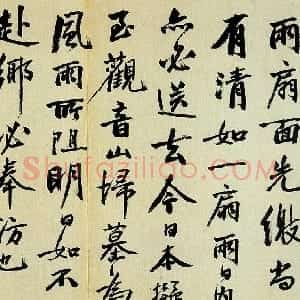 兩扇面先繳尚
有清如扇兩日內
亦必送去今日本擬
至觀音山掃墓為
風雨所阻明日如不
赴鄉必奉訪也
Shufaziliao.com